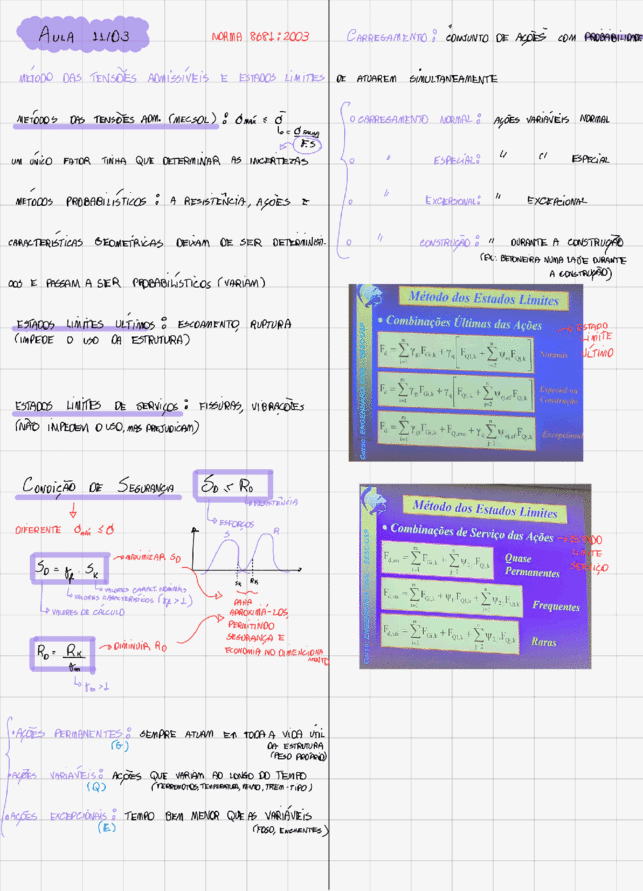 AULA 11/03
NORMA 8681:2003
MÉTODO DAS TENSÕES ADMISSÍVEIS E ESTADOS LIMITES
MÉTODOS DAS TENSÕES ADM. (MECSOL): σmáx ≤ σ̄
FS
UM ÚNICO FATOR TINHA QUE DETERMINAR AS INCERTEZAS
MÉTODOS PROBABILÍSTICOS: A RESISTÊNCIA, AÇÕES E
CARACTERÍSTICAS GEOMÉTRICAS DEIXAM DE SER DETERMINÍSTI-
COS E PASSAM A SER PROBABILÍSTICOS (VARIAM)
ESTADOS LIMITES ÚLTIMOS: ESCOAMENTO, RUPTURA
(IMPEDE O USO DA ESTRUTURA)
ESTADOS LIMITES DE SERVIÇOS: FISSURAS, VIBRAÇÕES
(NÃO IMPEDEM O USO, MAS PREJUDICAM)
CONDIÇÃO DE SEGURANÇA
SD ≤ RD
RESISTÊNCIA
ESFORÇOS
DIFERENTE σmáx ≤ σ̄
S R
SK RK
SD = γf · SK
AUMENTAR SD
VALORES CARACT. NOMINAIS
VALORES CARACTERÍSTICOS (γf >1)
VALORES DE CÁLCULO
PARA
APROXIMÁ-LOS,
PERMITINDO
SEGURANÇA E
ECONOMIA NO DIMENCIONA
MENTO
RD = RK / γm
DIMINUIR RD
γm >1
• AÇÕES PERMANENTES: SEMPRE ATUAM EM TODA A VIDA ÚTIL
(G)
DA ESTRUTURA
(PESO PRÓPRIO)
• AÇÕES VARIÁVEIS: AÇÕES QUE VARIAM AO LONGO DO TEMPO
(Q)
(TERREMOTOS, TEMPERATURA, VENTO, TREM-TIPO)
• AÇÕES EXCEPCIONAIS: TEMPO BEM MENOR QUE AS VARIÁVEIS
(E)
(FOGO, ENCHENTES)
CARREGAMENTO: CONJUNTO DE AÇÕES COM PROBABILIDADE
DE ATUAREM SIMULTANEAMENTE
o CARREGAMENTO NORMAL: AÇÕES VARIÁVEIS NORMAL
o " ESPECIAL: " " ESPECIAL
o " EXCEPCIONAL: " EXCEPCIONAL
o " CONSTRUÇÃO: " DURANTE A CONSTRUÇÃO
(EX: BETONEIRA NUMA LAJE DURANTE
A CONSTRUÇÃO)
Método dos Estados Limites
• Combinações Últimas das Ações
ESTADO
LIMITE
ÚLTIMO
Normais
Especial ou
Construção
Excepcional
Método dos Estados Limites
• Combinações de Serviço das Ações
ESTADO
LIMITE
SERVIÇO
Quase
Permanentes
Frequentes
Raras